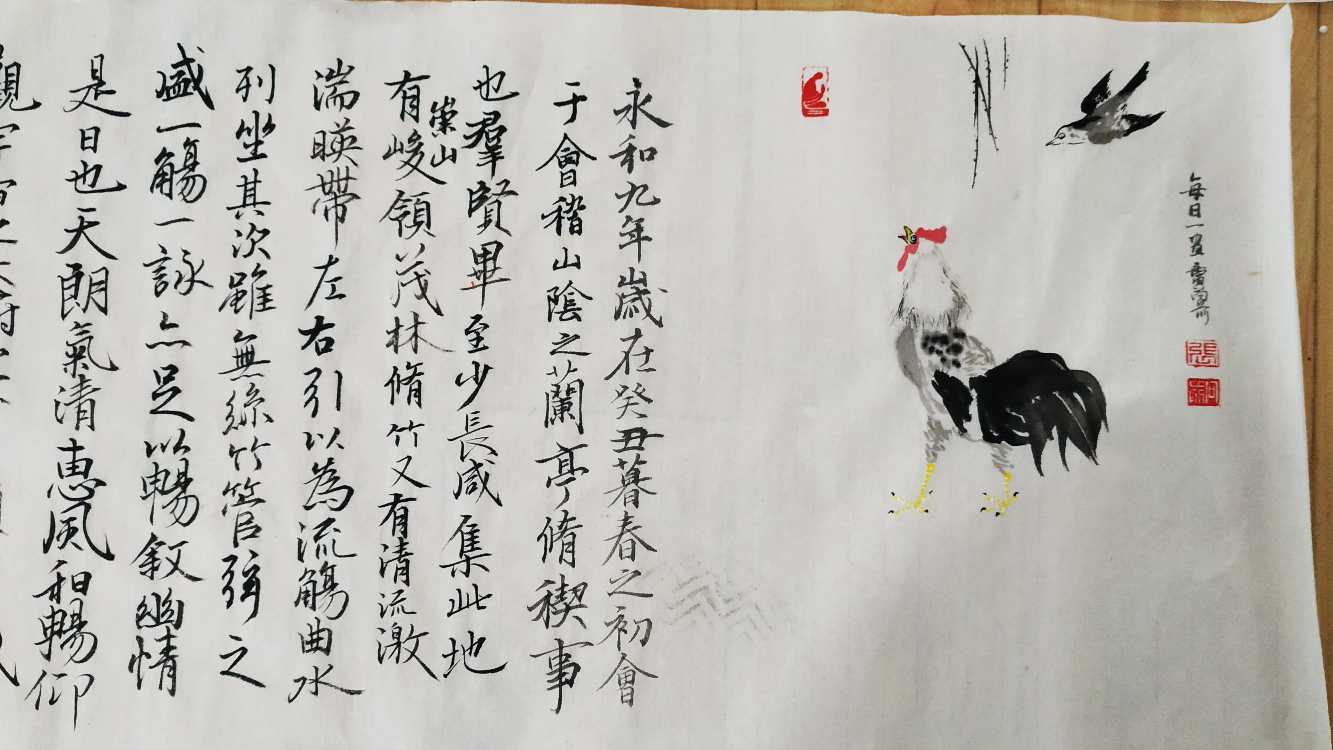 每日一畫
張
永和九年歲在癸丑暮春之初會
于會稽山陰之蘭亭脩稧事
也羣賢畢至少長咸集此地
有崇山峻領茂林脩竹又有清流激
湍暎帶左右引以為流觴曲水
列坐其次雖無絲竹管弦之
盛一觴一詠亦足以暢敘幽情
是日也天朗氣清惠風和暢仰
觀宇宙之大府